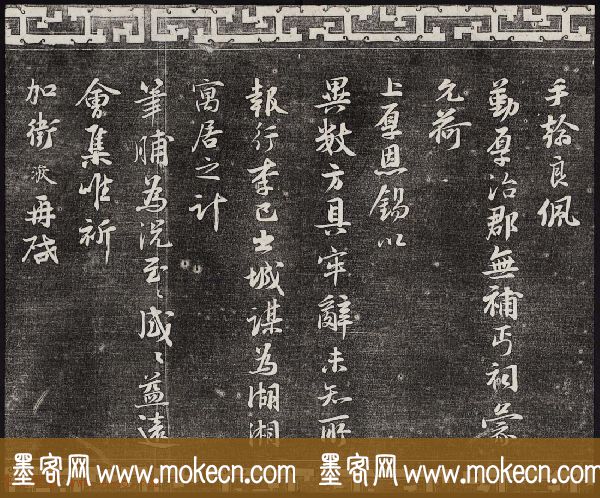 手翰良佩
勤厚冶郡無補丐祠蒙
允荷
上厚恩錫以
異数方具牢辭未知所
報行李已出城謀為湖湘
寓居之計
筆脯為況至之感之益遠
會集惟祈
加衛浚再啟
墨客网 www.mokecn.com 墨客网 www.mokecn.com